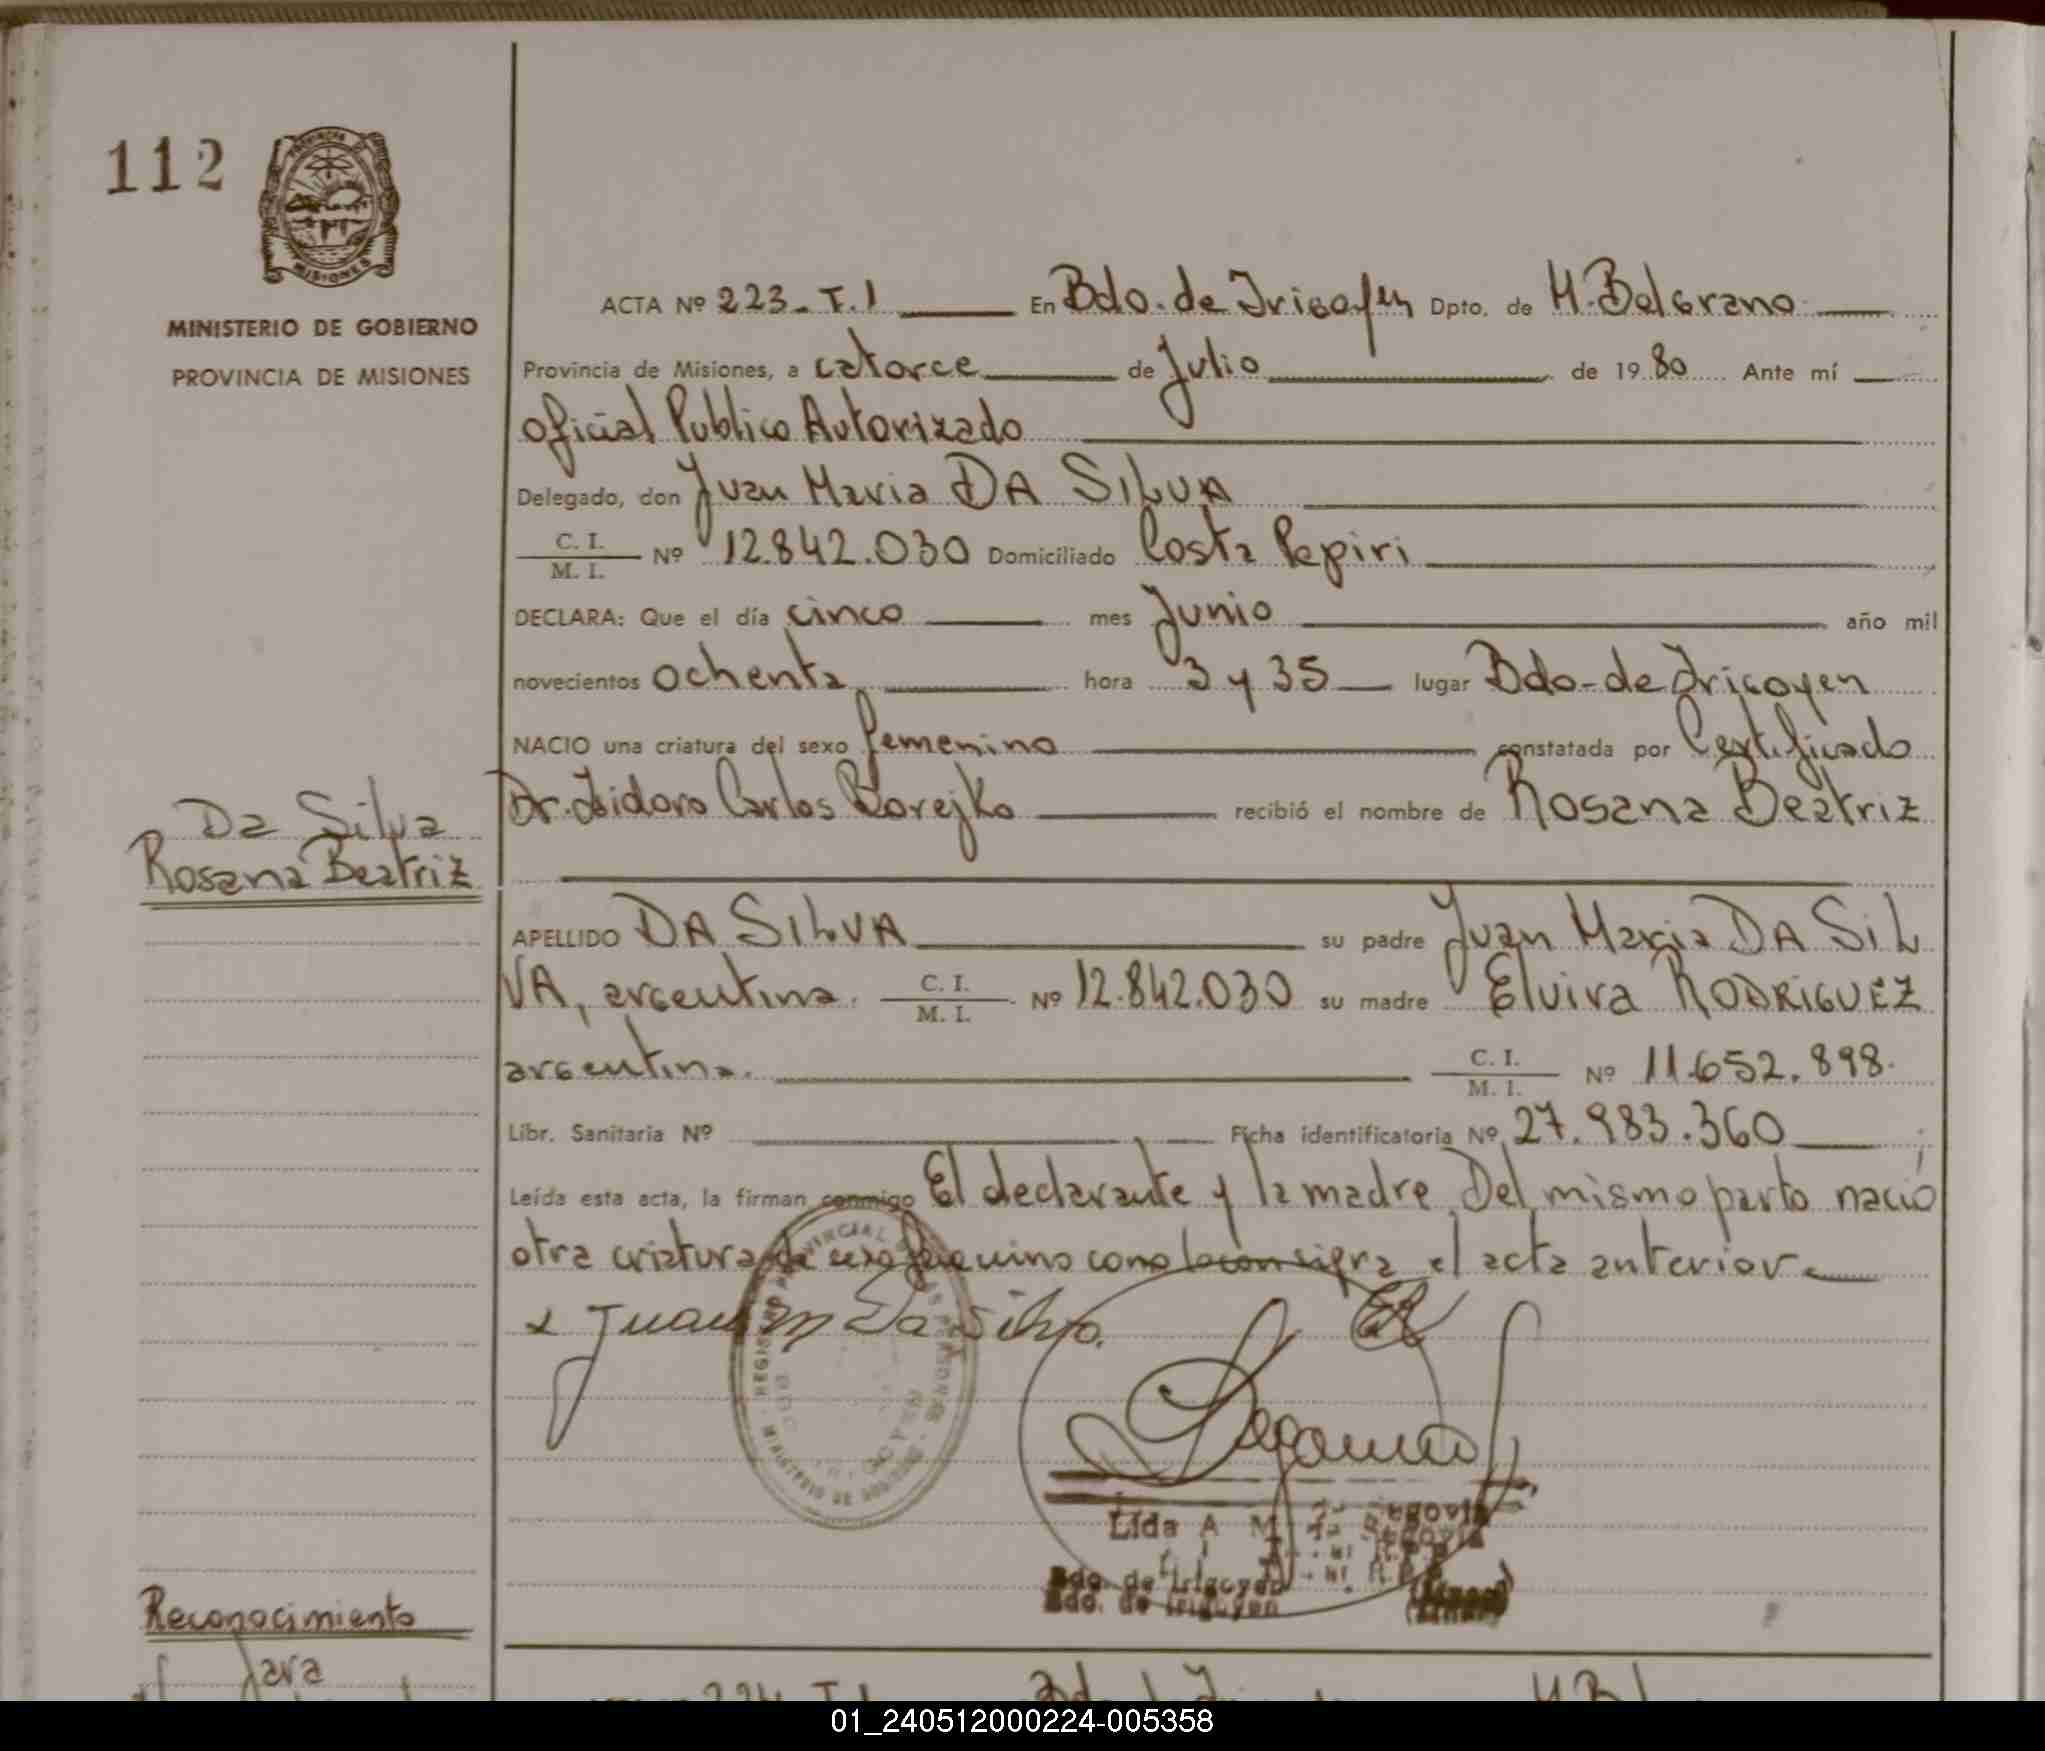 112
PROVINCIA DE
MISIONES
MINISTERIO DE GOBIERNO
PROVINCIA DE MISIONES
ACTA Nº 223-T.I En Bdo. de Irigoyen Dpto. de M. Belgrano
Provincia de Misiones, a catorce de Julio de 1980 Ante mí
Oficial Publico Autorizado
Delegado, don Juan Maria DA SILVA
C. I. / M. I. Nº 12.842.030 Domiciliado Costa Pepiri
DECLARA: Que el día cinco mes Junio año mil
novecientos ochenta hora 3 y 35 lugar Bdo-de Irigoyen
NACIO una criatura del sexo femenino constatada por Certificado
Dr. Isidoro Carlos Borejko recibió el nombre de Rosana Beatriz
Da Silva
Rosana Beatriz
APELLIDO DA SILVA su padre Juan Maria DA SIL
VA, argentina. C. I. / M. I. Nº 12.842.030 su madre Elvira RODRIGUEZ
argentina. C. I. / M. I. Nº 11.652.898.
Libr. Sanitaria Nº Ficha identificatoria Nº 27.983.360
Leída esta acta, la firman conmigo El declarante y la madre. Del mismo parto nació
otra criatura de sexo como lo consigna el acta anterior
x Juan M Da Silva.
REGISTRO PROVINCIAL DE LAS PERSONAS
MINISTERIO DE GOBIERNO
Lida A M de Segovia
Bdo. de Irigoyen
Bdo. de Irigoyen
Reconocimiento
Jara
224 T.I
01_240512000224-005358